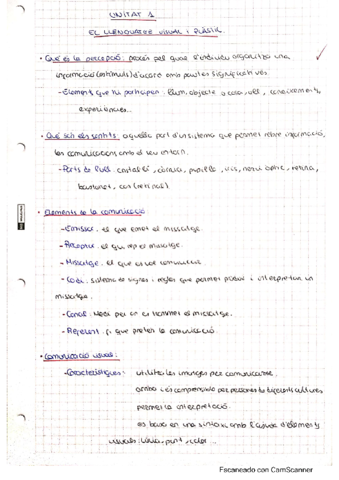 UNITAT 1
EL LLENGUATGE VISUAL I PLÀSTIC
· Què és la percepció: procés pel qual s'individu organitza una
informació (estímuls) d'acord amb pautes significatives.
- Elements que hi participen: llum, objecte o cosa, ull, coneixements,
experiències...
· Què són els sentits: aquella part d'un sistema que permet rebre informació,
les comunicacions amb el seu entorn.
- Parts de l'ull: cristal·lí, còrnea, pupil·la, iris, nervi òptic, retina,
bastonet, con (retinas)
· Elements de la comunicació
- Emissor: el que emet el missatge.
- Receptor: el que rep el missatge.
- Missatge: el que es vol comunicar.
- Codi: sistema de signes i regles que permet produir i interpretar un
missatge.
- Canal: per on es transmet el missatge.
- Referent: que pretén la comunicació.
· Comunicació visual:
- Característiques: utilitza les imatges per comunicar-se.
arriba i és comprensible per persones de diferents cultures
permet la interpretació
es basa en una sintaxi amb l'ajuda d'elements
visuals: línia, punt, color...
Escaneado con CamScanner